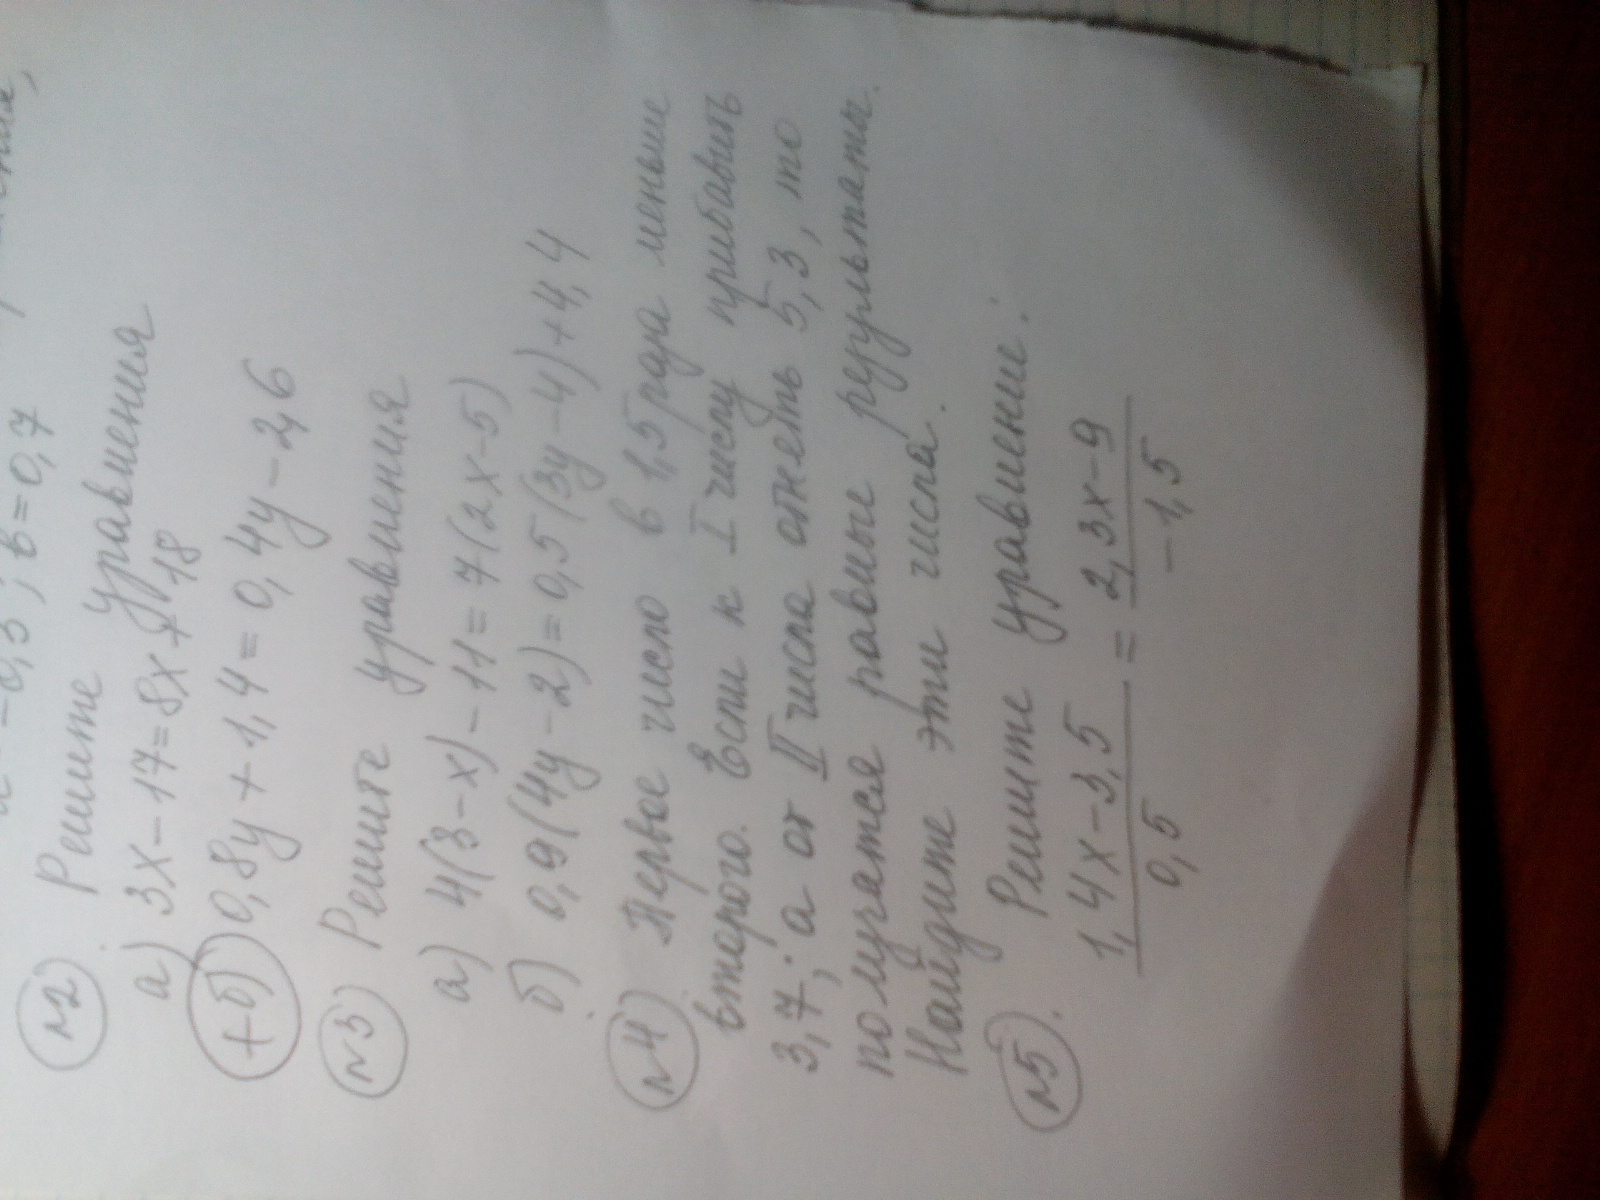 -0,3; b=0,7
№2. Решите уравнения
а) 3x-17=8x+18
+б) 0,8y+1,4=0,4y-2,6
№3 Решите уравнения
а) 4(3-x)-11=7(2x-5)
б) 0,9(4y-2)=0,5(3y-4)+4,4
№4 Первое число в 1,5 раза меньше
второго. Если к I числу прибавить
3,7; а от II числа отнять 5,3, то
получатся равные результаты.
Найдите эти числа.
№5. Решите уравнение:
1,4x-3,5 = 2,3x-9
0,5 -1,5